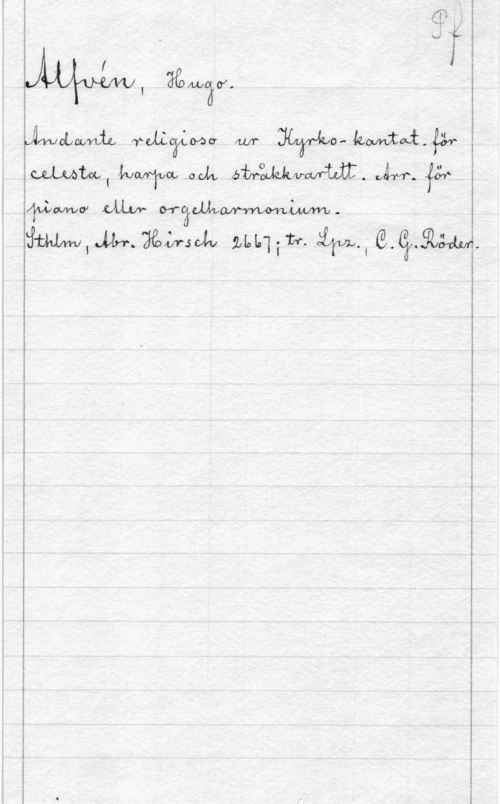 Pf
Alfvén, Hugo.
Andante religioso ur Kyrko-kantat. för
celesta, harpa och stråkkvartett. Arr. för
piano eller orgelharmonium.
Sthlm, Abr. Hirsch 2667; tr. Lpz., C. G. Röder.